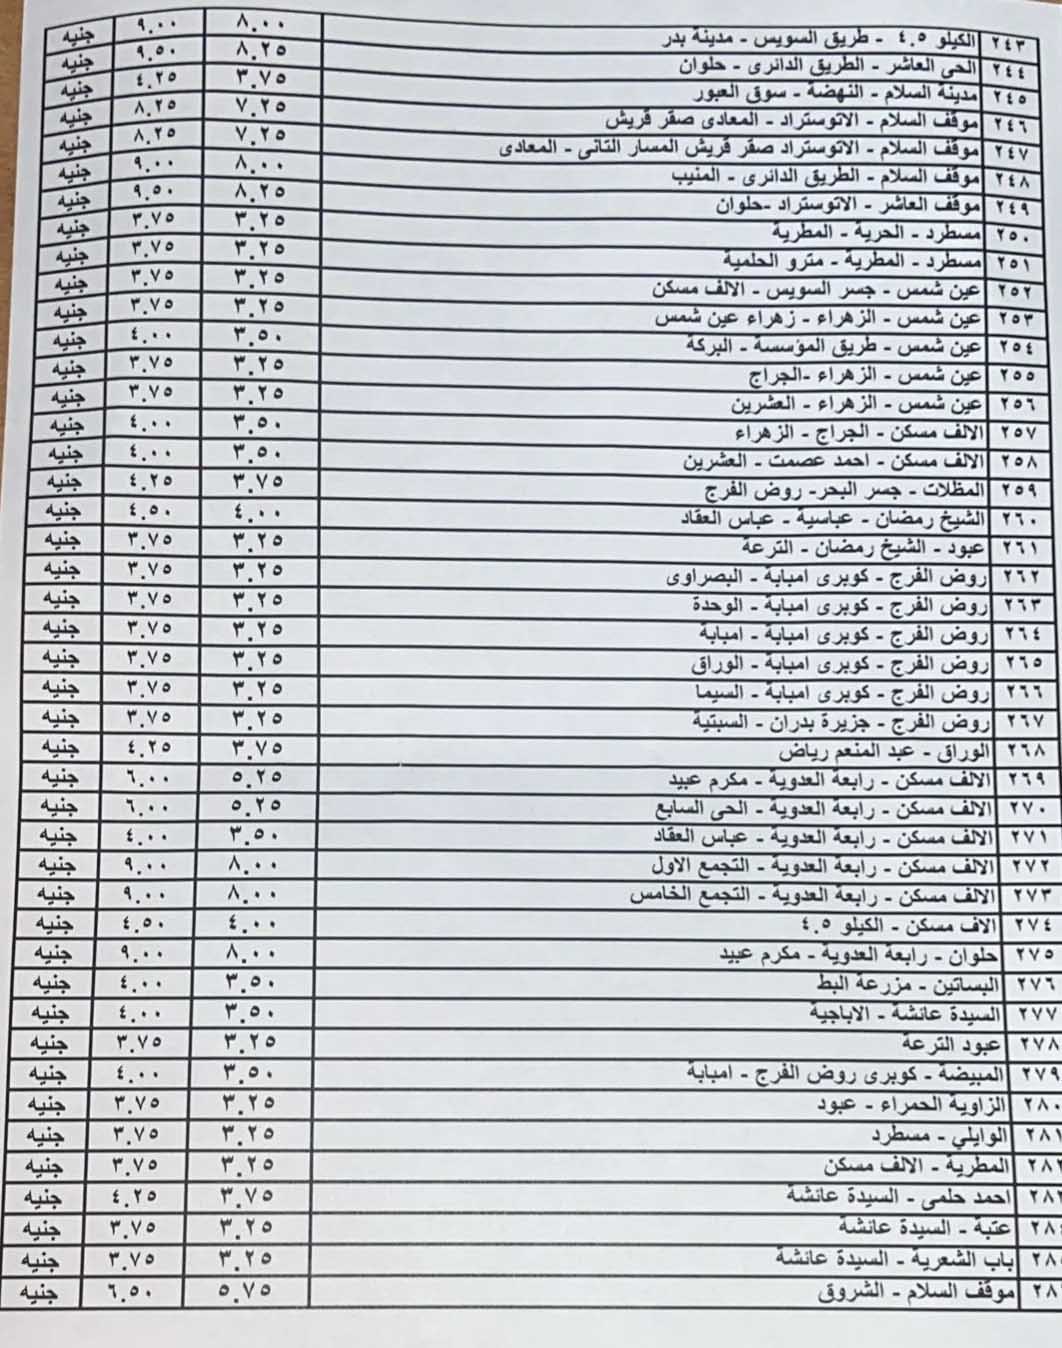 ٢٤٣ الكيلو ٤.٥ - طريق السويس - مدينة بدر ٨.٠٠ ٩.٠٠ جنيه
٢٤٤ الحى العاشر - الطريق الدائرى - حلوان ٨.٢٥ ٩.٥٠ جنيه
٢٤٥ مدينة السلام - النهضة - سوق العبور ٣.٧٥ ٤.٢٥ جنيه
٢٤٦ موقف السلام - الاتوستراد - المعادى صقر قريش ٧.٢٥ ٨.٢٥ جنيه
٢٤٧ موقف السلام - الاتوستراد صقر قريش المسار الثانى - المعادى ٧.٢٥ ٨.٢٥ جنيه
٢٤٨ موقف السلام - الطريق الدائرى - المنيب ٨.٠٠ ٩.٠٠ جنيه
٢٤٩ موقف العاشر - الاتوستراد -حلوان ٨.٢٥ ٩.٥٠ جنيه
٢٥٠ مسطرد - الحرية - المطرية ٣.٢٥ ٣.٧٥ جنيه
٢٥١ مسطرد - المطرية - مترو الحلمية ٣.٢٥ ٣.٧٥ جنيه
٢٥٢ عين شمس - جسر السويس - الالف مسكن ٣.٢٥ ٣.٧٥ جنيه
٢٥٣ عين شمس - الزهراء - زهراء عين شمس ٣.٢٥ ٣.٧٥ جنيه
٢٥٤ عين شمس - طريق المؤسسة - البركة ٣.٥٠ ٤.٠٠ جنيه
٢٥٥ عين شمس - الزهراء -الجراج ٣.٢٥ ٣.٧٥ جنيه
٢٥٦ عين شمس - الزهراء - العشرين ٣.٢٥ ٣.٧٥ جنيه
٢٥٧ الالف مسكن - الجراج - الزهراء ٣.٥٠ ٤.٠٠ جنيه
٢٥٨ الالف مسكن - احمد عصمت - العشرين ٣.٥٠ ٤.٠٠ جنيه
٢٥٩ المظلات - جسر البحر- روض الفرج ٣.٧٥ ٤.٢٥ جنيه
٢٦٠ الشيخ رمضان - عباسية - عباس العقاد ٤.٠٠ ٤.٥٠ جنيه
٢٦١ عبود - الشيخ رمضان - الترعة ٣.٢٥ ٣.٧٥ جنيه
٢٦٢ روض الفرج - كوبرى امبابة - البصراوى ٣.٢٥ ٣.٧٥ جنيه
٢٦٣ روض الفرج - كوبرى امبابة - الوحدة ٣.٢٥ ٣.٧٥ جنيه
٢٦٤ روض الفرج - كوبرى امبابة - امبابة ٣.٢٥ ٣.٧٥ جنيه
٢٦٥ روض الفرج - كوبرى امبابة - الوراق ٣.٢٥ ٣.٧٥ جنيه
٢٦٦ روض الفرج - كوبرى امبابة - السيما ٣.٢٥ ٣.٧٥ جنيه
٢٦٧ روض الفرج - جزيرة بدران - السبتية ٣.٢٥ ٣.٧٥ جنيه
٢٦٨ الوراق - عبد المنعم رياض ٣.٧٥ ٤.٢٥ جنيه
٢٦٩ الالف مسكن - رابعة العدوية - مكرم عبيد ٥.٢٥ ٦.٠٠ جنيه
٢٧٠ الالف مسكن - رابعة العدوية - الحى السابع ٥.٢٥ ٦.٠٠ جنيه
٢٧١ الالف مسكن - رابعة العدوية - عباس العقاد ٣.٥٠ ٤.٠٠ جنيه
٢٧٢ الالف مسكن - رابعة العدوية - التجمع الاول ٨.٠٠ ٩.٠٠ جنيه
٢٧٣ الالف مسكن - رابعة العدوية - التجمع الخامس ٨.٠٠ ٩.٠٠ جنيه
٢٧٤ الاف مسكن - الكيلو ٤.٥ ٤.٠٠ ٤.٥٠ جنيه
٢٧٥ حلوان - رابعة العدوية - مكرم عبيد ٨.٠٠ ٩.٠٠ جنيه
٢٧٦ البساتين - مزرعة البط ٣.٥٠ ٤.٠٠ جنيه
٢٧٧ السيدة عائشة - الاباجية ٣.٥٠ ٤.٠٠ جنيه
٢٧٨ عبود الترعة ٣.٢٥ ٣.٧٥ جنيه
٢٧٩ المبيضة - كوبرى روض الفرج - امبابة ٣.٥٠ ٤.٠٠ جنيه
٢٨٠ الزاوية الحمراء - عبود ٣.٢٥ ٣.٧٥ جنيه
٢٨١ الوايلي - مسطرد ٣.٢٥ ٣.٧٥ جنيه
المطرية - الالف مسكن ٣.٢٥ ٣.٧٥ جنيه
احمد حلمى - السيدة عائشة ٣.٧٥ ٤.٢٥ جنيه
عتبة - السيدة عائشة ٣.٢٥ ٣.٧٥ جنيه
باب الشعرية - السيدة عائشة ٣.٢٥ ٣.٧٥ جنيه
موقف السلام - الشروق ٥.٧٥ ٦.٥٠ جنيه